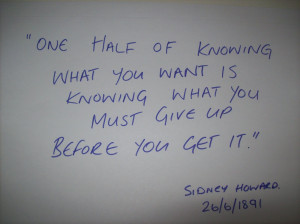 "ONE HALF OF KNOWING
WHAT YOU WANT IS
KNOWING WHAT YOU
MUST GIVE UP
BEFORE YOU GET IT."
SIDNEY HOWARD.
26/6/1891